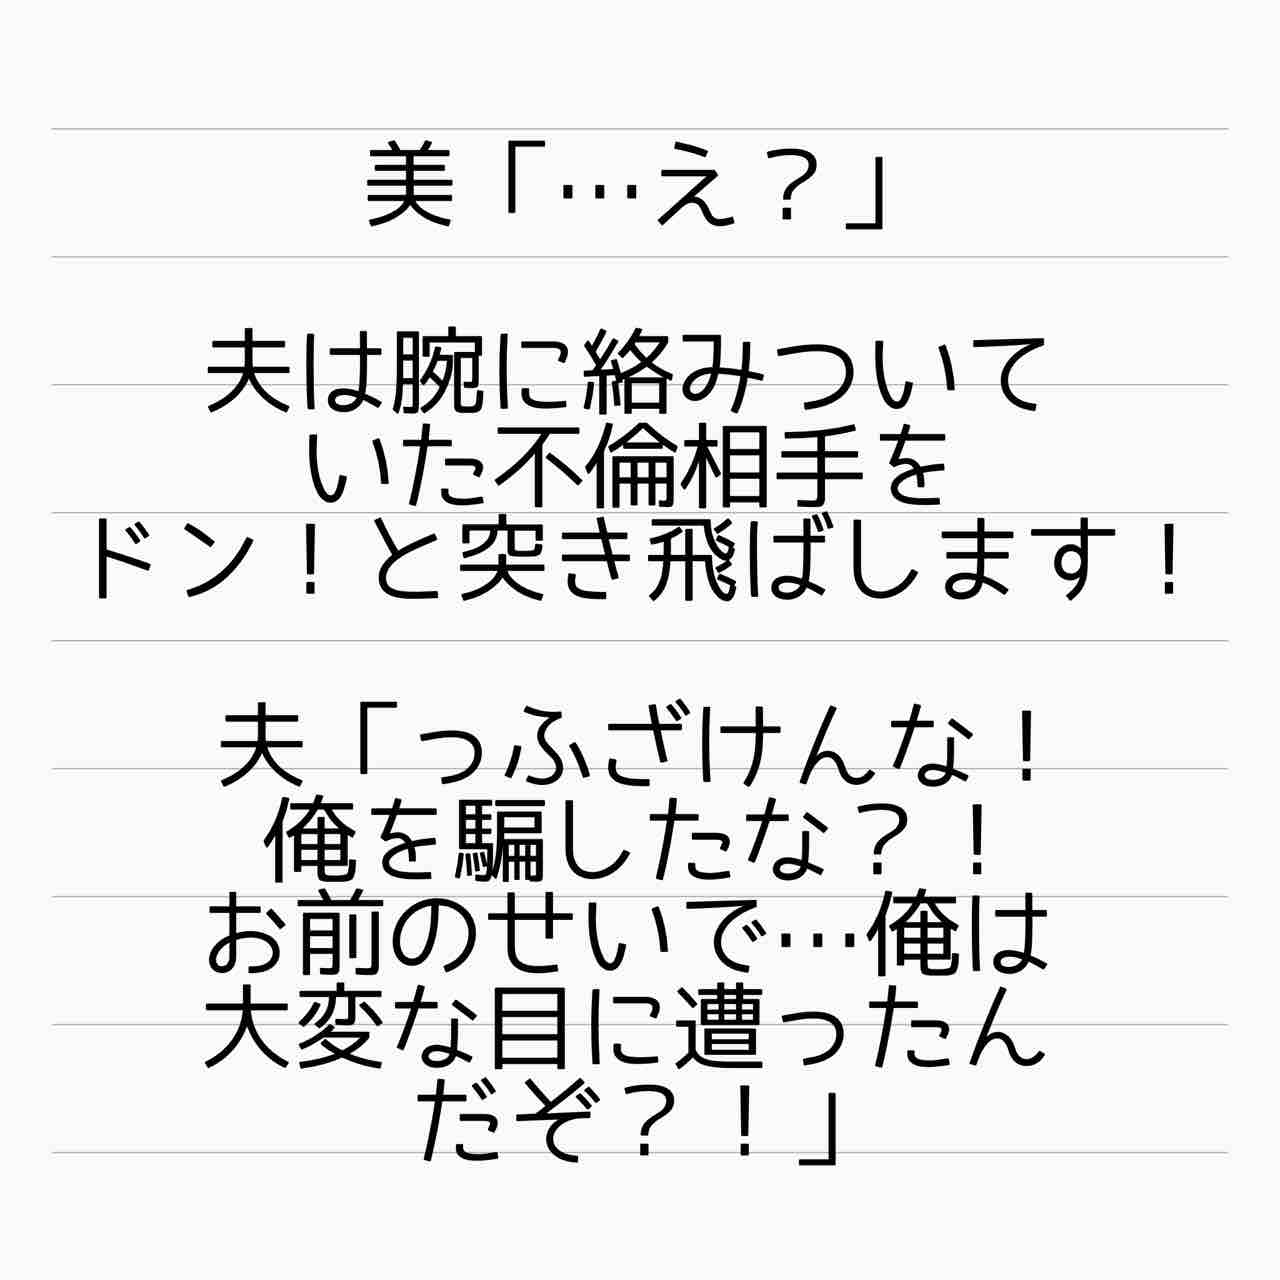 美「…え？」
夫は腕に絡みついて
いた不倫相手を
ドン！と突き飛ばします！
夫「っふざけんな！
俺を騙したな？！
お前のせいで…俺は
大変な目に遭ったん
だぞ？！」